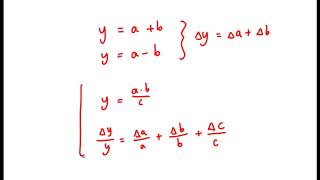 y = a + b
y = a - b } Δy = Δa + Δb
y = a·b/c
Δy/y = Δa/a + Δb/b + Δc/c